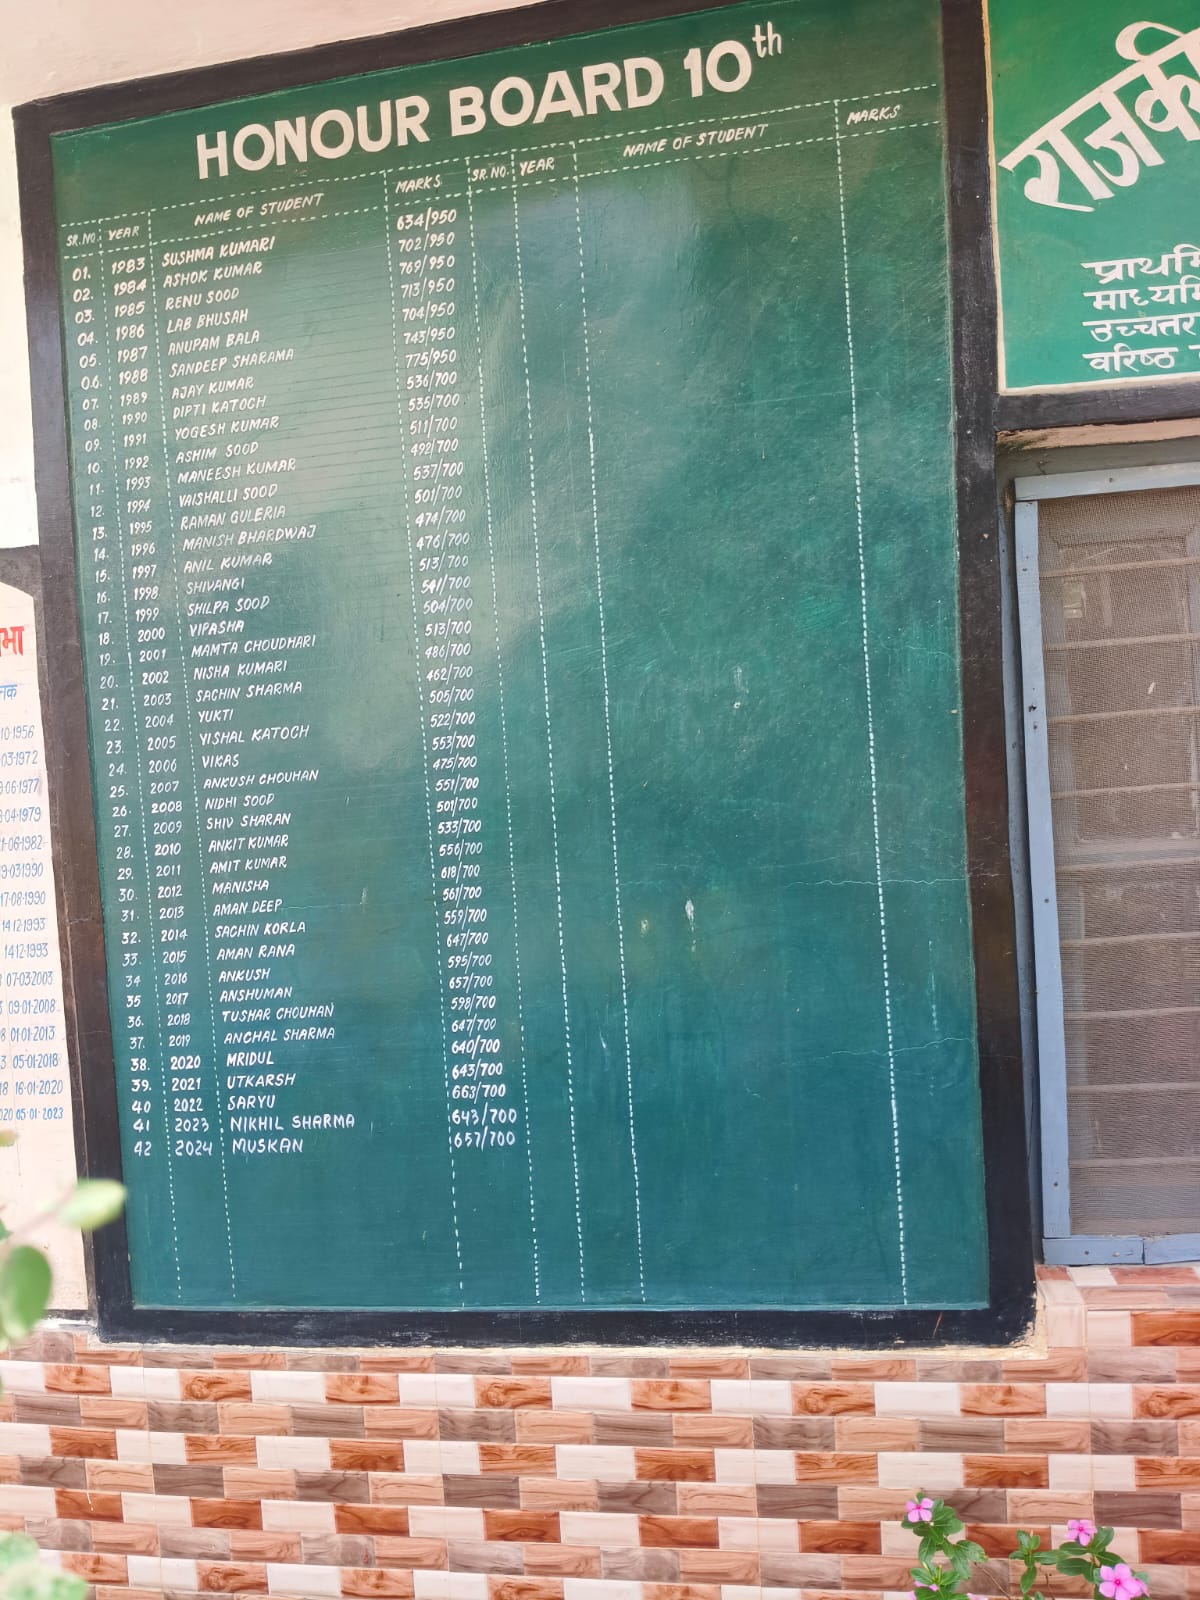 HONOUR BOARD 10th
SR.NO. YEAR NAME OF STUDENT MARKS SR.NO. YEAR NAME OF STUDENT MARKS
01. 1983 SUSHMA KUMARI 634/950
02. 1984 ASHOK KUMAR 702/950
03. 1985 RENU SOOD 769/950
04. 1986 LAB BHUSAH 713/950
05. 1987 ANUPAM BALA 704/950
06. 1988 SANDEEP SHARAMA 743/950
07. 1989 AJAY KUMAR 775/950
08. 1990 DIPTI KATOCH 536/700
09. 1991 YOGESH KUMAR 535/700
10. 1992 ASHIM SOOD 511/700
11. 1993 MANEESH KUMAR 492/700
12. 1994 VAISHALLI SOOD 537/700
13. 1995 RAMAN GULERIA 501/700
14. 1996 MANISH BHARDWAJ 474/700
15. 1997 ANIL KUMAR 476/700
16. 1998 SHIVANGI 513/700
17. 1999 SHILPA SOOD 541/700
18. 2000 VIPASHA 504/700
19. 2001 MAMTA CHOUDHARI 513/700
20. 2002 NISHA KUMARI 486/700
21. 2003 SACHIN SHARMA 462/700
22. 2004 YUKTI 505/700
23. 2005 VISHAL KATOCH 522/700
24. 2006 VIKAS 553/700
25. 2007 ANKUSH CHOUHAN 475/700
26. 2008 NIDHI SOOD 551/700
27. 2009 SHIV SHARAN 501/700
28. 2010 ANKIT KUMAR 533/700
29. 2011 AMIT KUMAR 556/700
30. 2012 MANISHA 618/700
31. 2013 AMAN DEEP 561/700
32. 2014 SACHIN KORLA 559/700
33. 2015 AMAN RANA 647/700
34 2016 ANKUSH 595/700
35 2017 ANSHUMAN 657/700
36. 2018 TUSHAR CHOUHAN 598/700
37. 2019 ANCHAL SHARMA 647/700
38. 2020 MRIDUL 640/700
39. 2021 UTKARSH 643/700
40 2022 SARYU 663/700
41 2023 NIKHIL SHARMA 643/700
42 2024 MUSKAN 657/700
राजकी
प्राथमि
माध्यमि
उच्चतर
वरिष्ठ
भा
नक
10·1956
03·1972
06·1977
04·1979
06·1982
03·1990
17·08·1990
14·12·1993
14·12·1993
07·03·2003
09·01·2008
01·01·2013
05·01·2018
16·01·2020
05·01·2023